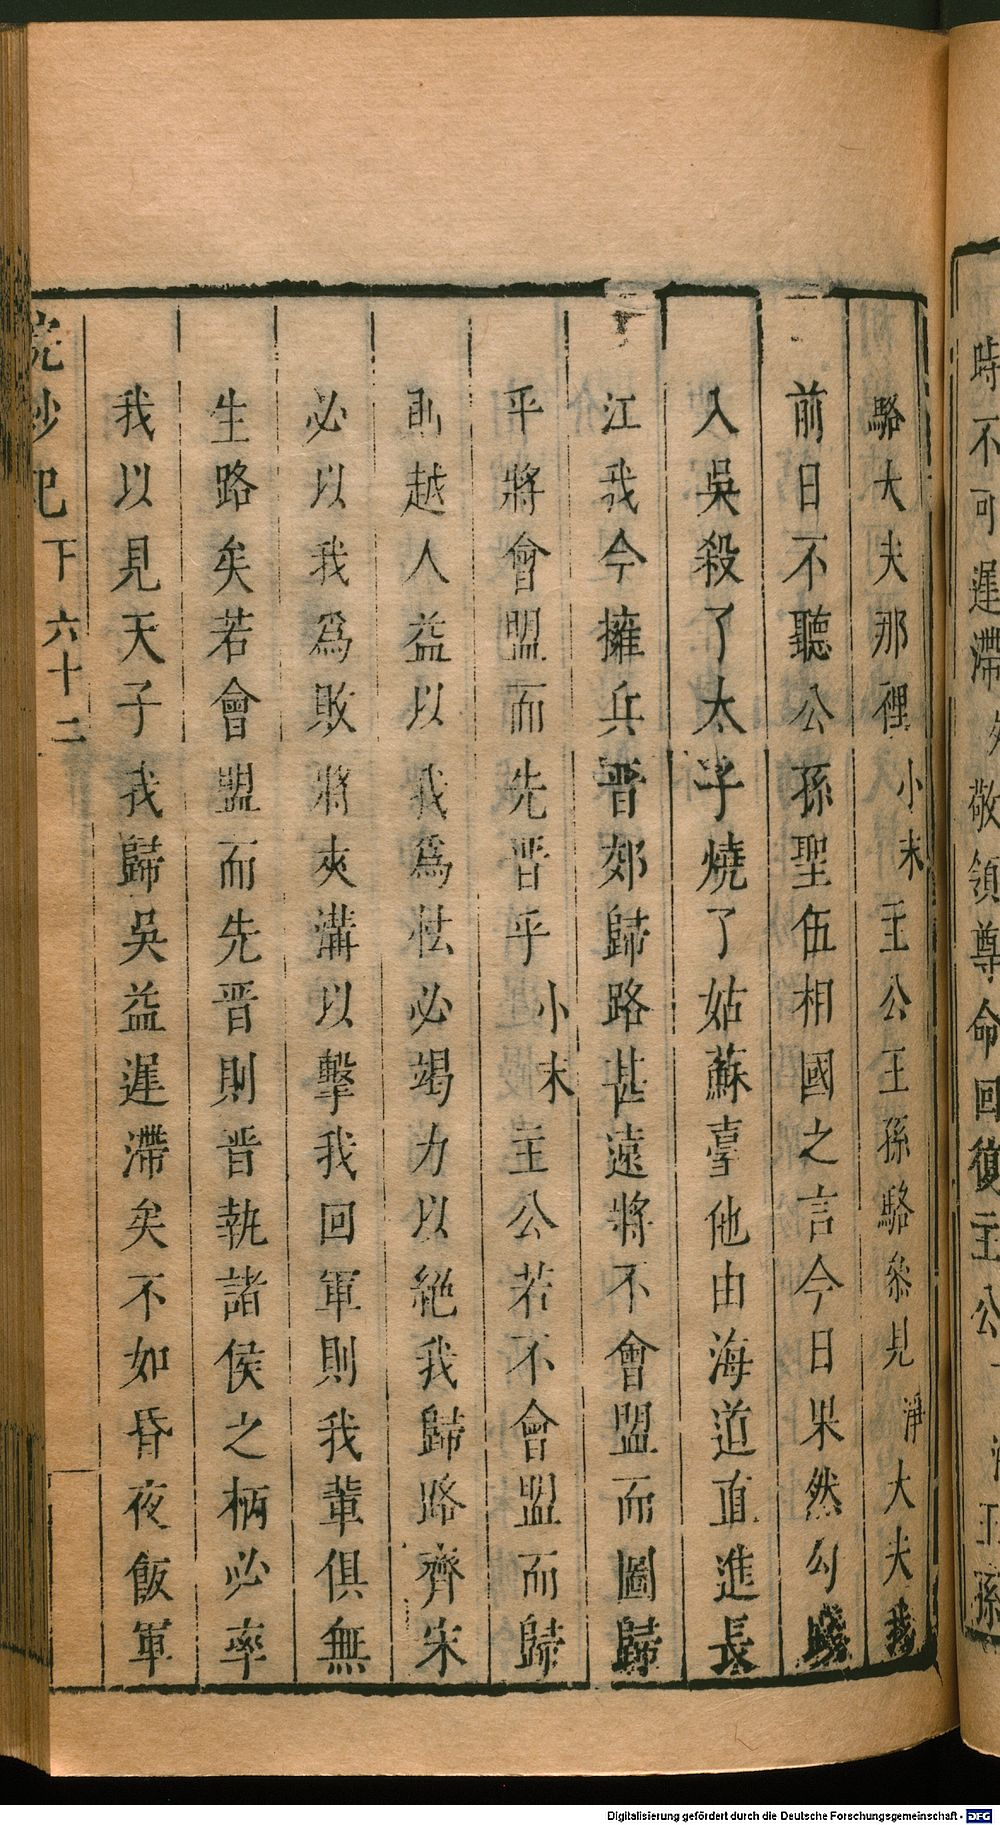 時不可遲滯 敬領尊命回復主公 王孫
駱大夫那裡 小末 主公王孫駱叅見 淨 大夫我
前日不聽公孫聖伍相國之言今日果然勾踐
入吳殺了太子燒了姑蘇臺他由海道直進長
江我今擁兵晋郊歸路甚遠將不會盟而圖歸
乎將會盟而先晋乎 小末 主公若不會盟而歸
則越人益以我爲怯必竭力以絕我歸路齊宋
必以我爲敗將夾溝以擊我回軍則我輩俱無
生路矣若會盟而先晋則晋執諸侯之柄必率
我以見天子我歸吳益遲滯矣不如昏夜飯軍
浣紗記 下 六十二
Digitalisierung gefördert durch die Deutsche Forschungsgemeinschaft - DFG